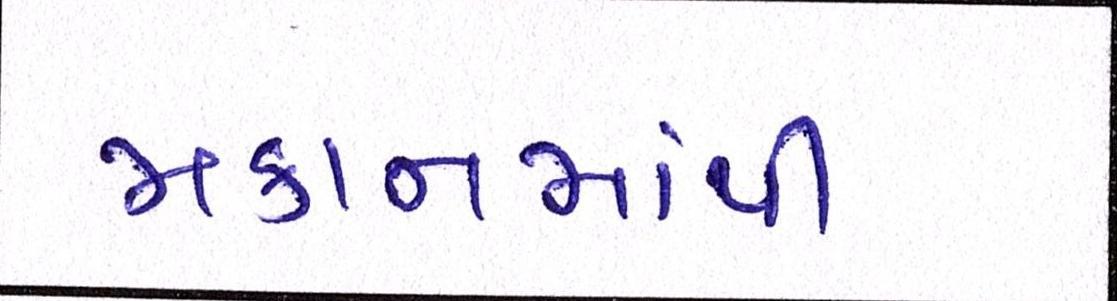 મકાનમાંથી